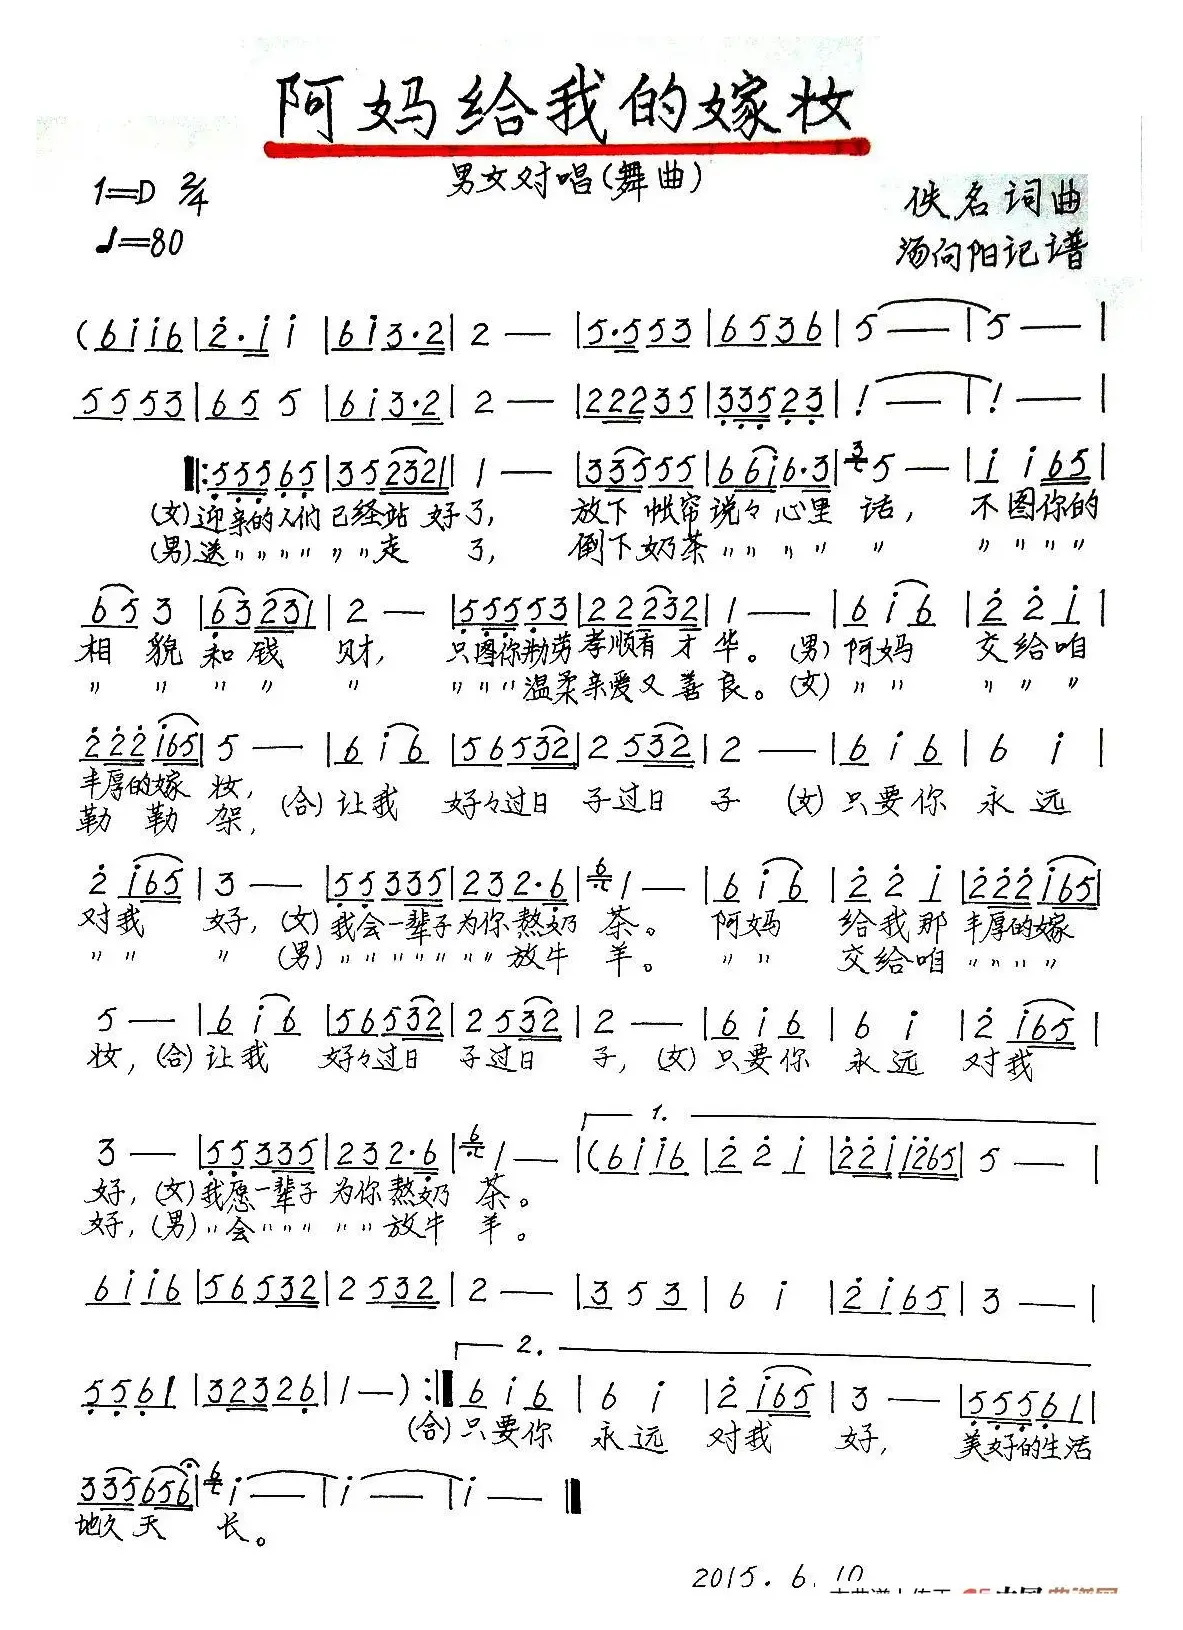 阿妈给我的嫁妆
男女对唱(舞曲)
1=D 2/4
佚名词曲
♩=80
汤向阳记谱
(6 i i 6 | 2·i i | 6 i 3·2 | 2 — | 5·5 5 3 | 6 5 3 6 | 5 — | 5 — |
5 5 5 3 | 6 5 5 | 6 i 3·2 | 2 — | 2 2 2 3 5 | 3 3 5 2 3 | 1 — | 1 — |
‖: 5 5 5 6 5 | 3 5 2 3 2 1 | 1 — | 3 3 5 5 5 | 6 6 i 6·3 | 5 — | i i 6 5 |
(女)迎亲的人们已经站好了, 放下帐帘说々心里话, 不图你的
(男)送〃〃〃〃〃〃走 了, 倒下奶茶〃〃〃〃 〃 〃〃〃〃
6 5 3 | 6 3 2 3 1 | 2 — | 5 5 5 5 3 | 2 2 2 3 2 | 1 — | 6 i 6 | 2 2 i |
相貌和钱财, 只图你勤劳孝顺有才华。(男)阿妈 交给咱
〃 〃 〃 〃 〃 〃〃〃温柔亲爱又善良。(女)〃 〃 〃 〃 〃
2 2 2 i 6 5 | 5 — | 6 i 6 | 5 6 5 3 2 | 2 5 3 2 | 2 — | 6 i 6 | 6 i |
丰厚的嫁妆, (合)让我 好々过日 子过日 子 (女)只要你 永远
勒勒架,
2 i 6 5 | 3 — | 5 5 3 3 5 | 2 3 2·6 | 1 — | 6 i 6 | 2 2 i | 2 2 2 i 6 5 |
对我 好,(女)我会一辈子为你熬奶 茶。 阿妈 给我那 丰厚的嫁
〃 〃 〃 (男)〃〃〃〃〃〃〃放牛 羊。 〃 〃 交给咱 〃〃〃〃
5 — | 6 i 6 | 5 6 5 3 2 | 2 5 3 2 | 2 — | 6 i 6 | 6 i | 2 i 6 5 |
妆,(合)让我 好々过日 子过日 子,(女)只要你 永远 对我
1.
3 — | 5 5 3 3 5 | 2 3 2·6 | 1 — | (6 i i 6 | 2 2 i | 2 2 i i 2 6 5 | 5 — |
好,(女)我愿一辈子 为你熬奶 茶。
好,(男)〃会〃〃〃 〃〃放牛 羊。
6 i i 6 | 5 6 5 3 2 | 2 5 3 2 | 2 — | 3 5 3 | 6 i | 2 i 6 5 | 3 — |
2.
5 5 6 1 | 3 2 3 2 6 | 1 — ) :‖ 6 i 6 | 6 i | 2 i 6 5 | 3 — | 5 5 5 6 1 |
(合)只要你 永远 对我 好, 美好的生活
3 3 5 6 5 6 | i — | i — | i — ‖
地久天 长。
2015.6.10